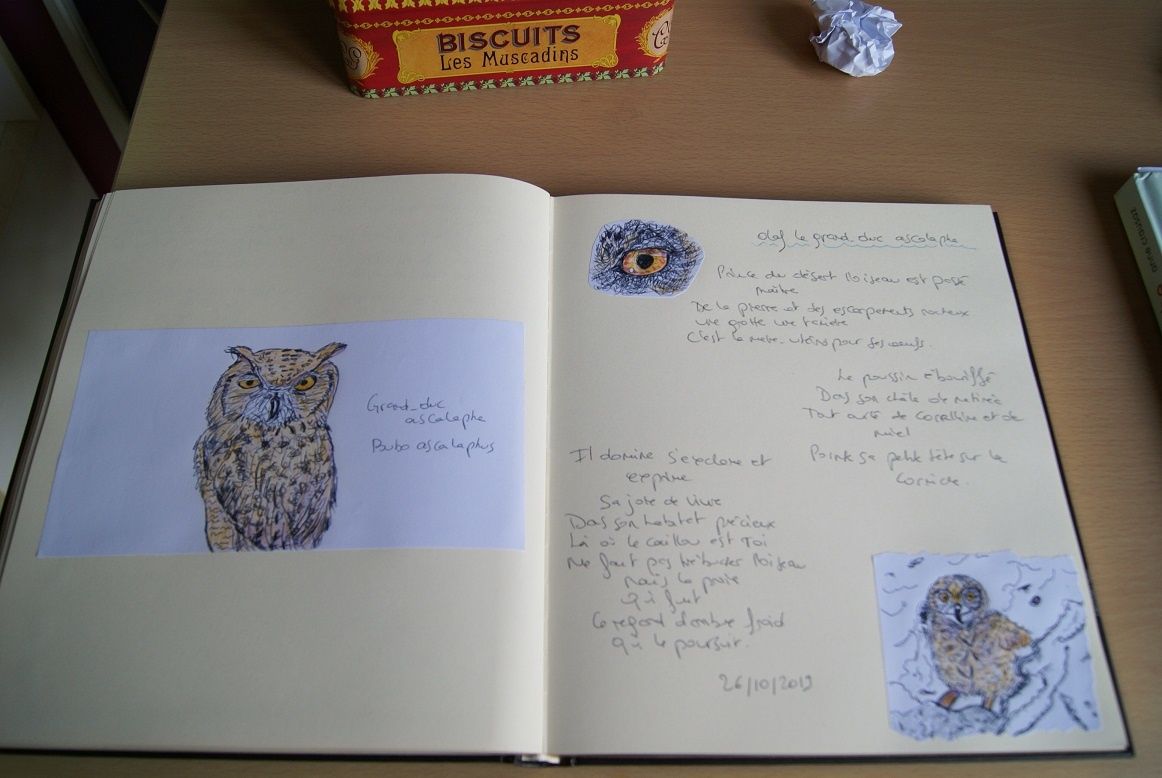 BISCUITS
Les Muscadins
Grand-duc
ascalaphe
Bubo ascalaphus
Olaf le grand-duc ascalaphe
Prince du désert l'oiseau est passé
maître
De la pierre et des escarpements rocheux
Une grotte une tanière
C'est la mère-utérus pour ses oeufs.
Le poussin ébouriffé
Dans son châle de
Tout de coralline et de
miel
Pointe sa petite tête sur la
corniche.
Il domine s'exclame et
exprime
Sa joie de vivre
Dans son habitat précieux
Là où le caillou est roi
Ne fait pas trébucher l'oiseau
mais la proie
Qui fuit
Le regard d'ambre froid
Qui la poursuit.
26/10/2019